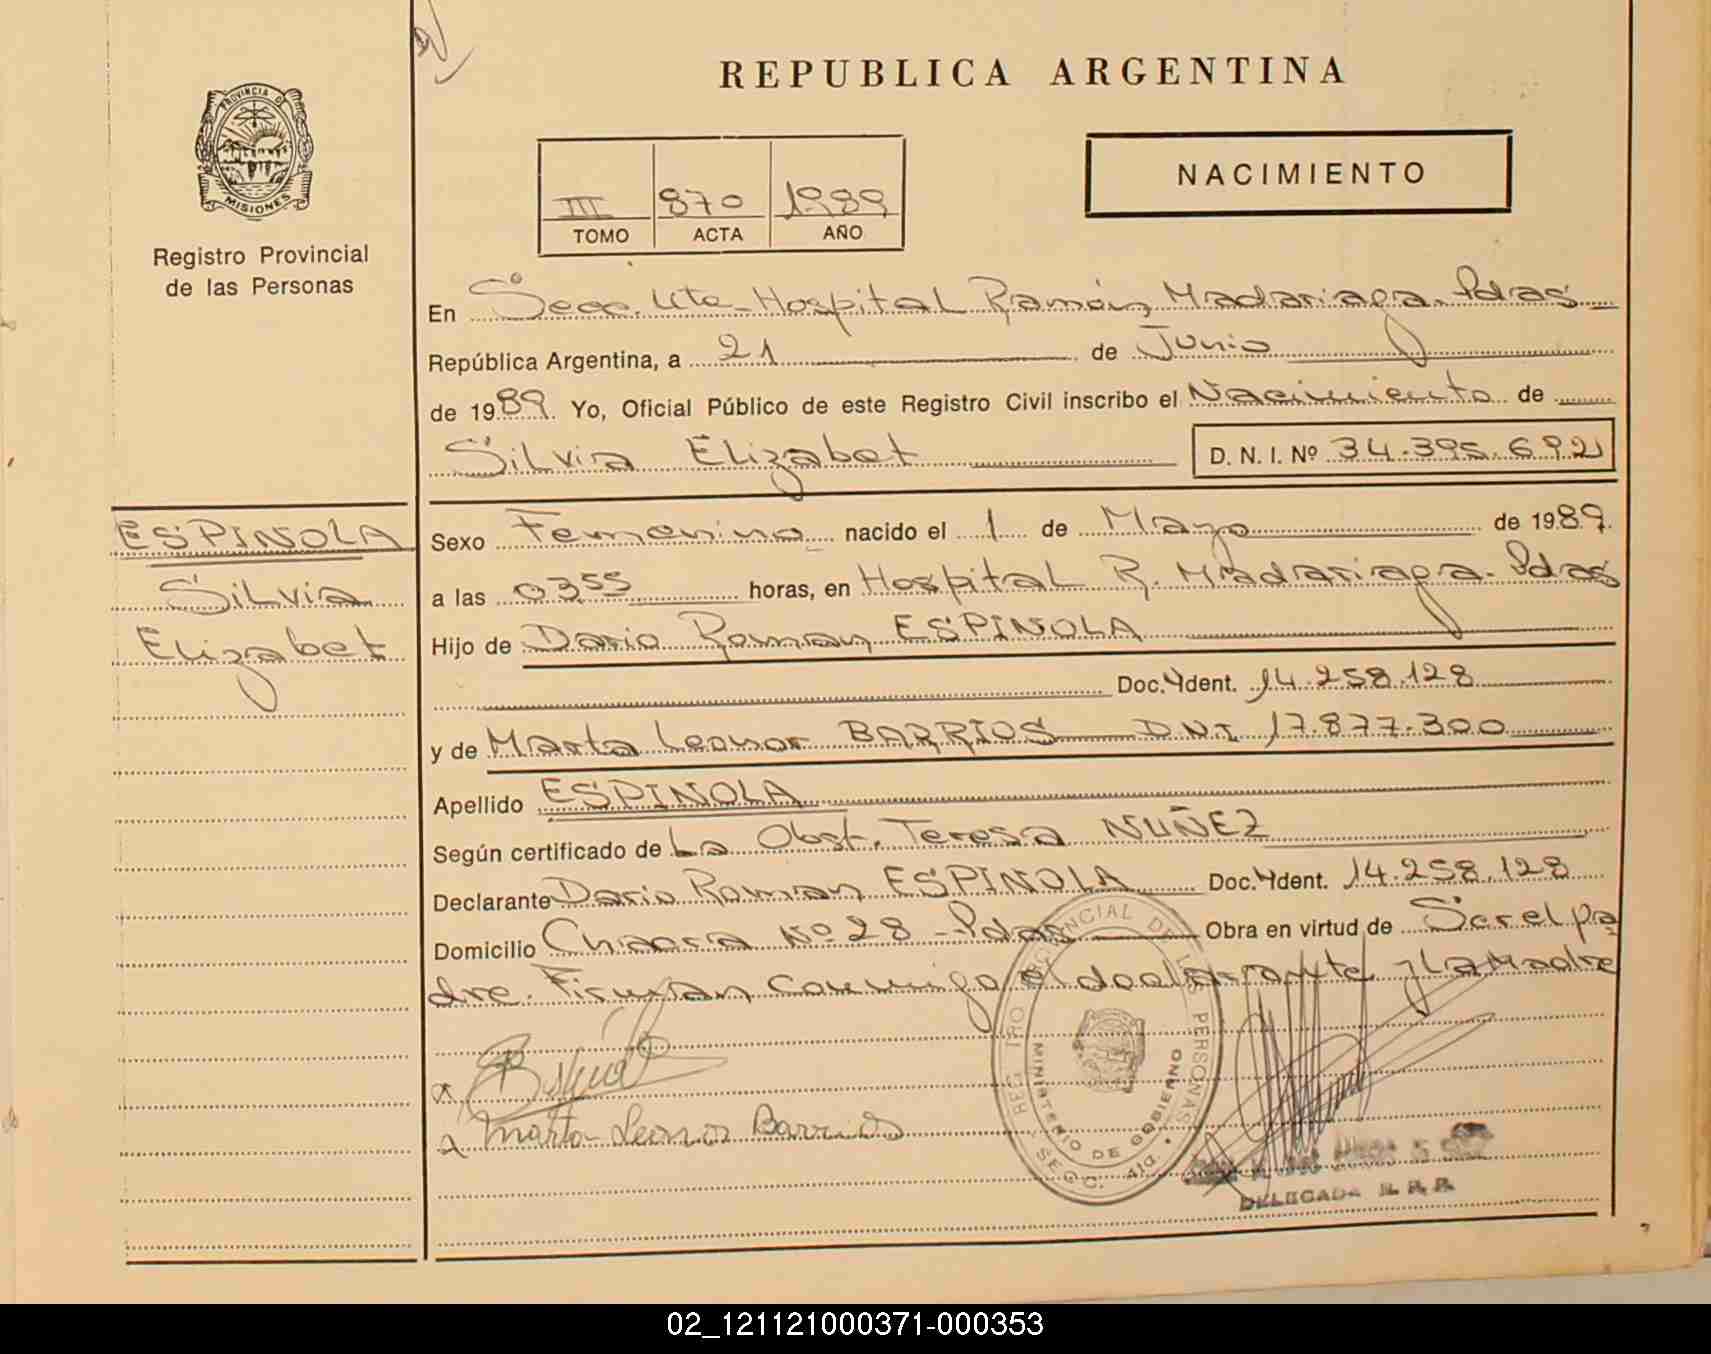 REPUBLICA ARGENTINA
PROVINCIA D
MISIONES
Registro Provincial
de las Personas
III 870 1989
TOMO ACTA AÑO
NACIMIENTO
En Secc. 4ta - Hospital Ramón Madariaga. Pdas
República Argentina, a 21 de Junio
de 1989. Yo, Oficial Público de este Registro Civil inscribo el Nacimiento de
Silvia Elizabet D. N. I. Nº 34.395.692
ESPINOLA
Silvia
Elizabet
Sexo Femenino nacido el 1 de Mayo de 1989.
a las 0355 horas, en Hospital R. Madariaga. Pdas
Hijo de Dario Roman ESPINOLA
Doc. Ident. 14.258.128
y de Marta Leonor BARRIOS DNI 17.877.300
Apellido ESPINOLA
Según certificado de La Obst. Teresa NUÑEZ
Declarante Dario Roman ESPINOLA Doc. Ident. 14.258.128
Domicilio Chacra Nº 28 - Pdas Obra en virtud de Ser el pa
dre. Firman conmigo el declarante y la Madre
Marta Leonor Barrios
REGISTRO PROVINCIAL DE LAS PERSONAS
MINISTERIO DE GOBIERNO
SECC. 4ta.
DELEGADA R. P. P.
02_121121000371-000353